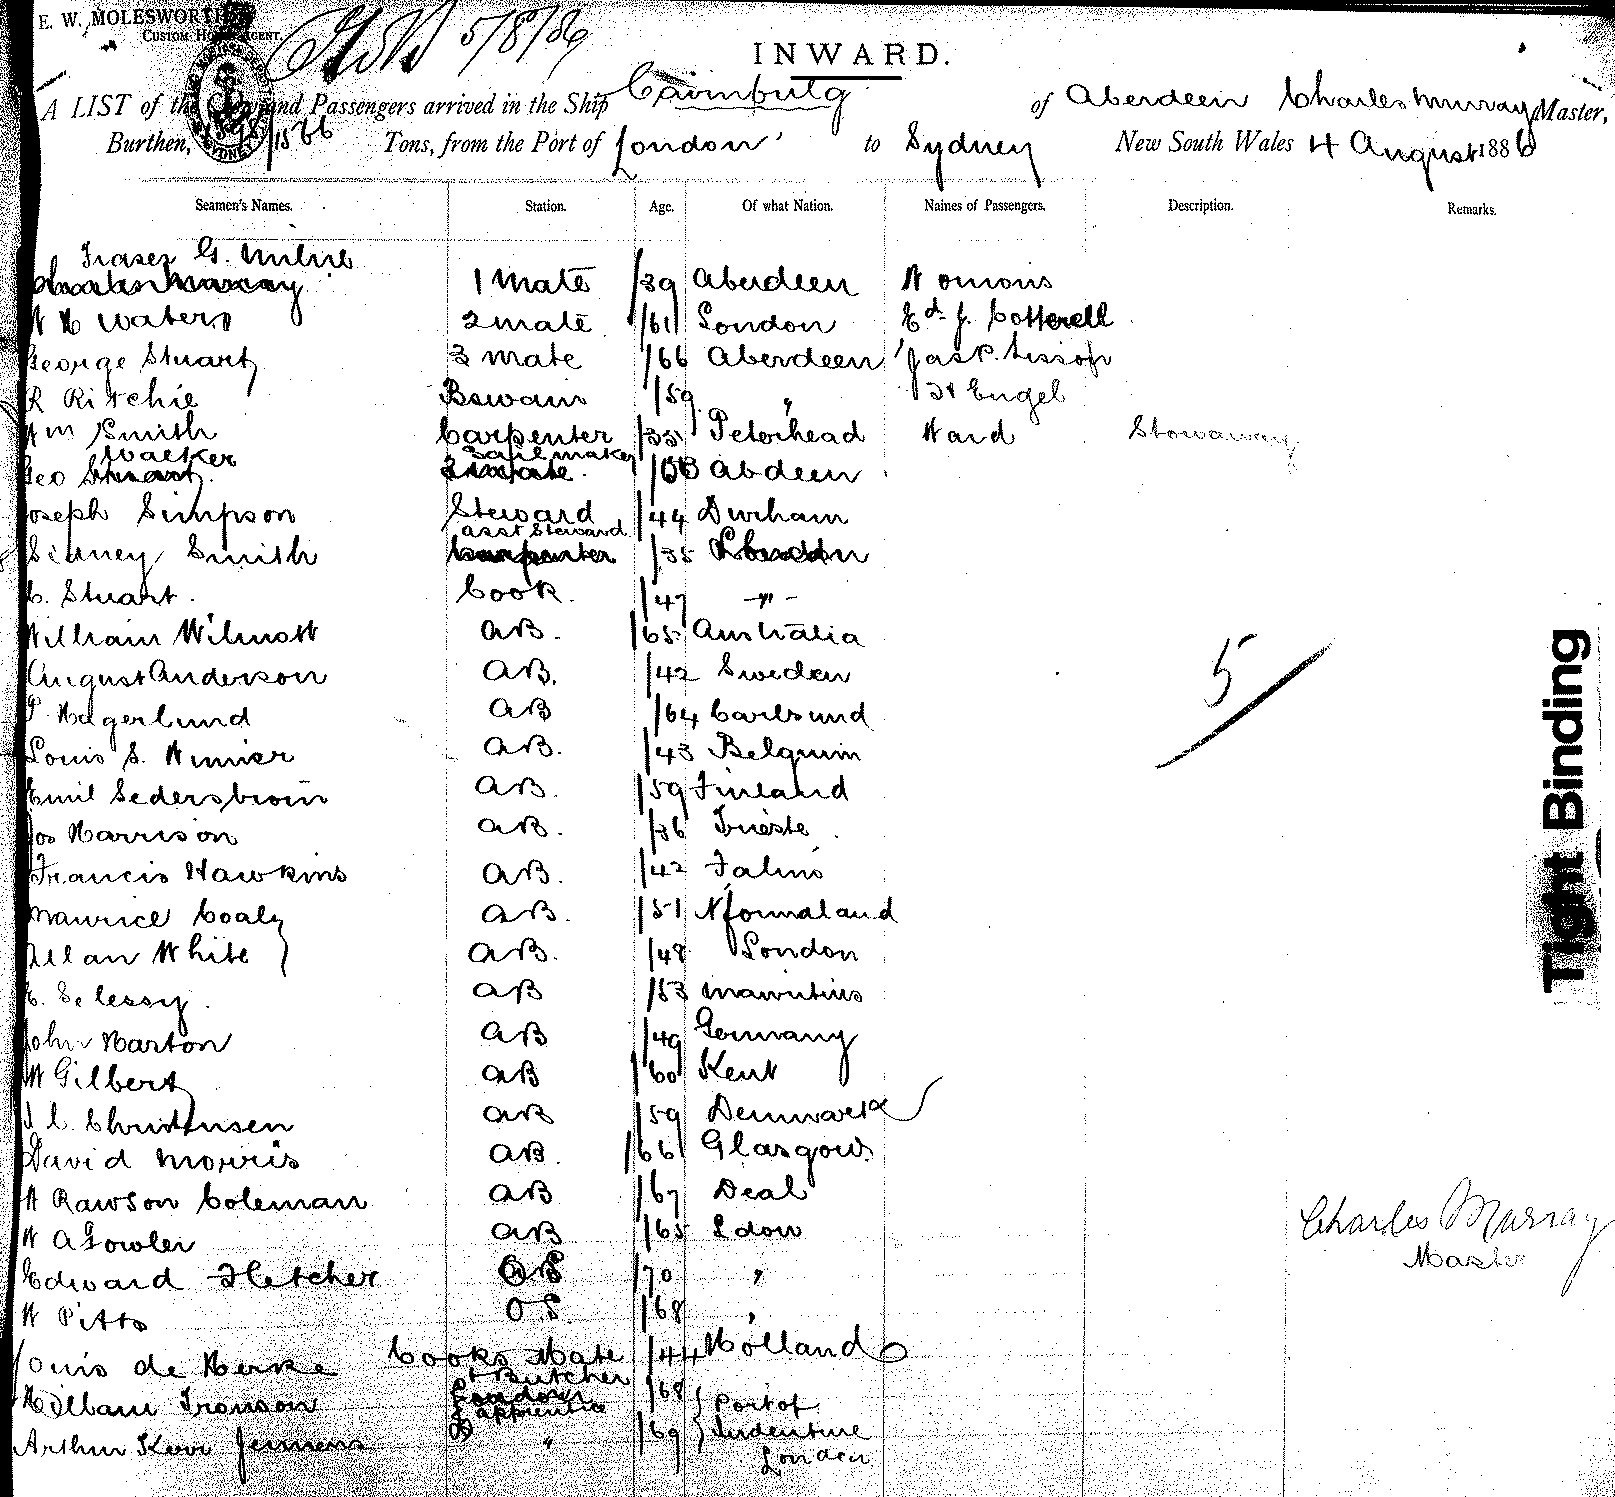 E. W. MOLESWORTH
CUSTOM HOUSE AGENT.
5/8/86
INWARD.
A LIST of the Crew and Passengers arrived in the Ship Cairnbulg of Aberdeen Charles Murray Master,
Burthen, 1566 Tons, from the Port of London to Sydney New South Wales 4 August 1886
Seamen's Names. Station. Age. Of what Nation. Names of Passengers. Description. Remarks.
Fraser G. Milne
Charles Murray 1 Mate /39 Aberdeen H Onions
W H Waters 2 mate /61 London Ed. J. Cotterell
George Stuart 3 mate /66 Aberdeen Jas P.
R Ritchie Boswain /59 " Engel
Wm Smith Carpenter /33 Peterhead Ward Stowaway
Walker Sailmaker
Geo Stuart 3 mate /56 Abdeen
Joseph Simpson Steward /44 Durham
asst Steward
Sidney Smith Carpenter /35 London
C. Stuart. Cook. /47 - " -
William Wilmott AB. /65 Australia
August Anderson AB. /42 Sweden
Hagerlund AB /64 Carlsund
Louis S. AB. /43 Belguim
Emil Sedersbrom AB. /59 Finland
Jos Harrison AB. /36 Trieste
Francis Hawkins AB. /42 Falmo
Maurice Coaly AB. /51 Nfoundland
Allan White AB. /48 London
E. Selessy. AB /53 Mauritius
John Harton AB /49 Germany
W Gilbert AB /60 Kent
J C. Christensen AB /59 Denmark
David Morris AB. /66 Glasgow
H Rawson Coleman AB /67 Deal
W A Fowler AB /65 Ldon
Edward Fletcher OS /70 "
W Pitts O.S. /68 "
Louis de Cooks Mate /44 Holland
& Butcher
William Tronson apprentice /68 Port of
Arthur Jermens " /69 Indenture
London
5
Charles Murray
Master
Tight Binding